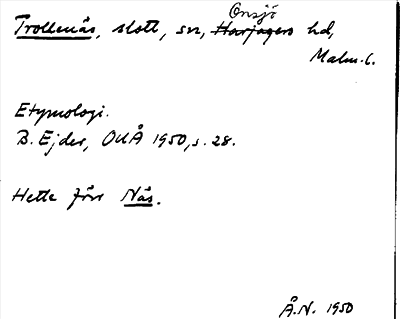 Onsjö
Trollenäs, slott, sn, Harjagers hd,
Malm. l.
Etymologi.
B. Ejder, OUÅ 1950, s. 28.
Hette förr Näs.
Å.N. 1950